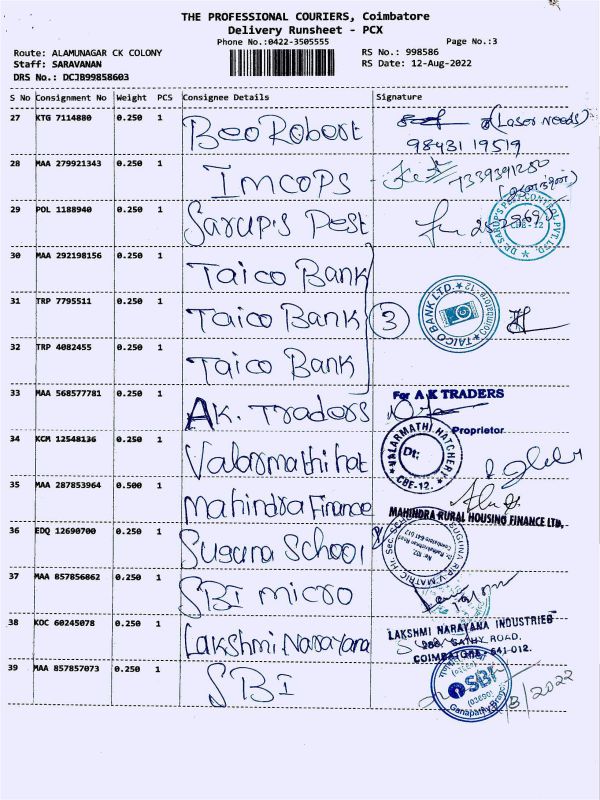 THE PROFESSIONAL COURIERS, Coimbatore
Delivery Runsheet - PCX
Phone No.:0422-3505555 Page No.:3
Route: ALAMUNAGAR CK COLONY RS No.: 998586
Staff: SARAVANAN RS Date: 12-Aug-2022
DRS No.: DCJB99858603
S No Consignment No Weight PCS Consignee Details Signature
27 KTG 7114880 0.250 1 Beo Robert (Laser needs)
9843119519
28 MAA 279921343 0.250 1 IMCOPS 7339391250
29 POL 1188940 0.250 1 Sarup's Pest
DR. SARUP'S PEST CONTROL PVT. LTD. CBE-12
30 MAA 292198156 0.250 1 Taico Bank
31 TRP 7795511 0.250 1 Taico Bank 3 TAICO BANK LTD. Coimbatore-12
32 TRP 4082455 0.250 1 Taico Bank
33 MAA 568577781 0.250 1 A.K. Traders For A K TRADERS
Proprietor
34 KCM 12548136 0.250 1 Valarmathi hat VALARMATHI HATCHERY Dt: CBE-12.
35 MAA 287853964 0.500 1 Mahindra Finance
MAHINDRA RURAL HOUSING FINANCE LTD.,
36 EDQ 12690700 0.250 1 Suguna School
37 MAA 857856862 0.250 1 SBI micro
38 KOC 60245078 0.250 1 Lakshmi Narayana LAKSHMI NARAYANA INDUSTRIES
288, SATHY ROAD,
COIMBATORE - 641-012.
39 MAA 857857073 0.250 1 SBI SBI (03690) Ganapathy Branch